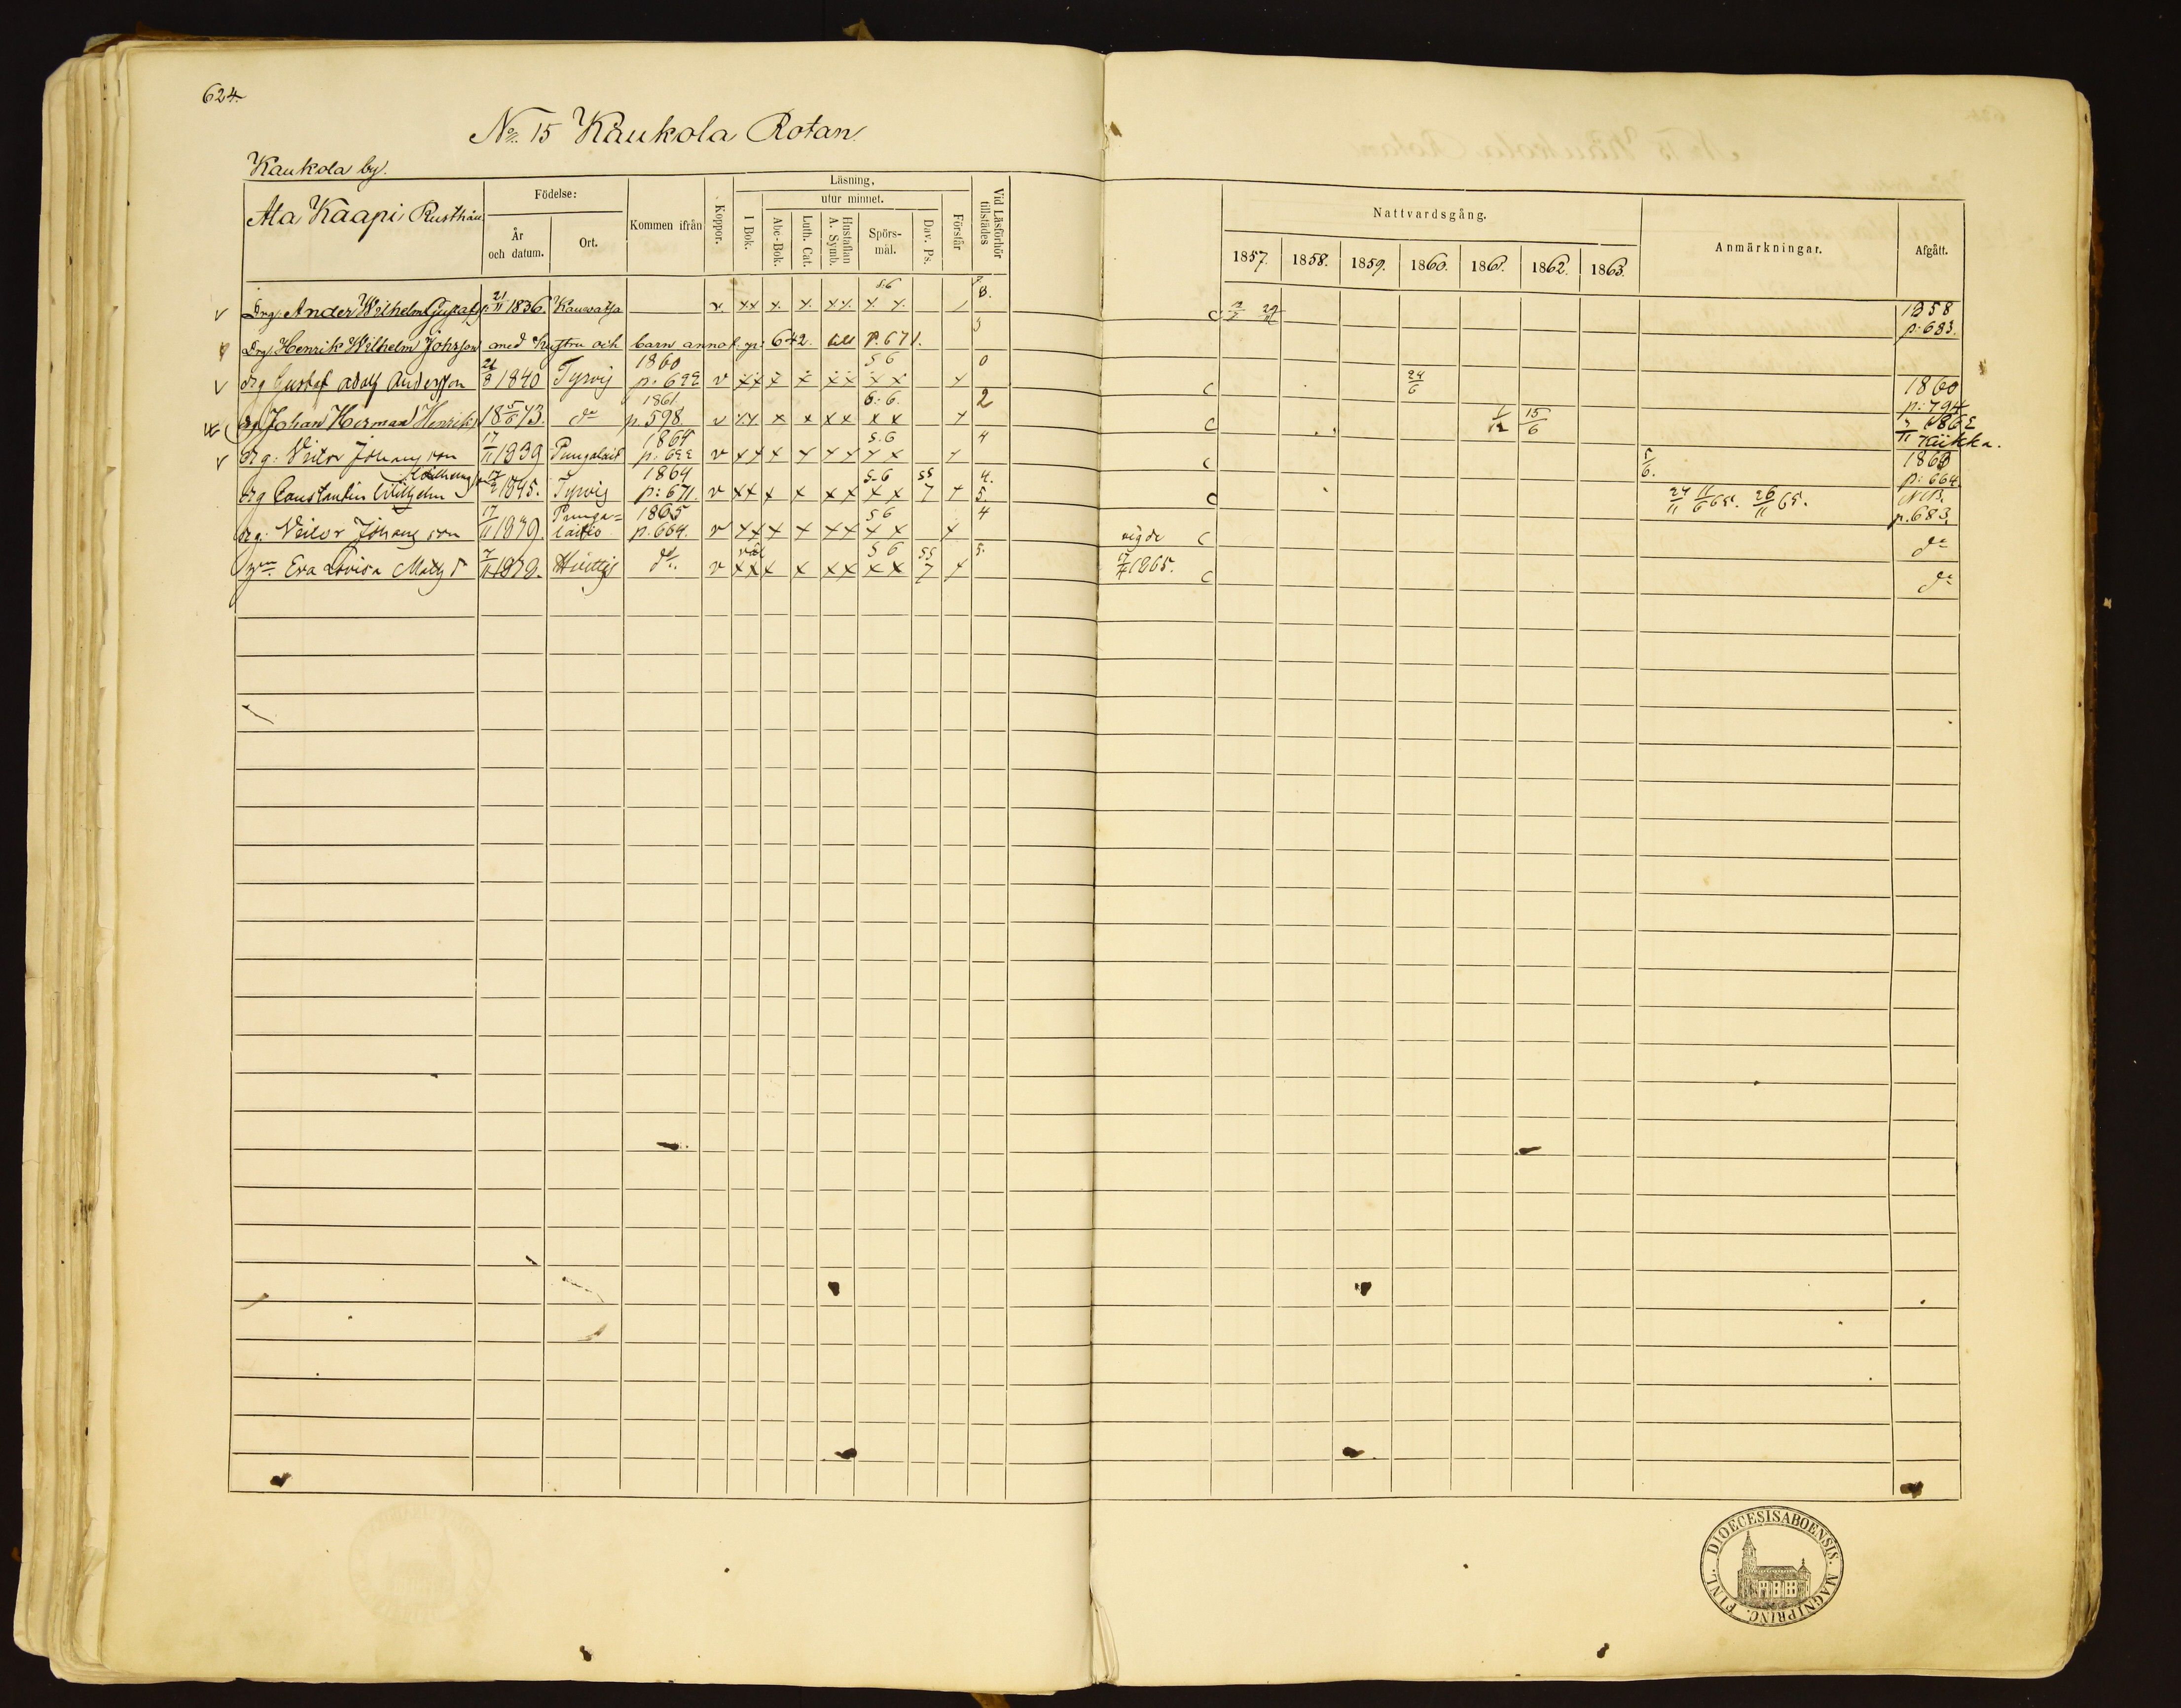 624.
No 15 Kaukola Rotan.
Kaukola by.
Ala Kaapi Rusthåll
Födelse:
År och datum.
Ort.
Kommen ifrån
Koppor.
Läsning.
I Bok.
utur minnet.
Abc-Bok.
Luth. Cat.
Hustaflan A. Symb.
Spörs-mål.
Dav. Ps.
Förstår
Vid Läsförhör tillstädes
Nattvardsgång.
1857. 1858. 1859. 1860. 1861. 1862. 1863.
Anmärkningar.
Afgått.
v Drg. Ander Wilhelm Gustafs 21/11 1836. Kauvatsa v. xx x x xx 5.6 x x 8. c 1858 p. 683.
Drg. Henrik Wilhelm Johnsson med hustru och barn annot. p: 642. till p. 671. 3
v drg Gustaf Adolf Andersson 21/8 1840 Tyrvis 1860 p. 622 v xx x x xx 5 6 x x x 0 c 24/6 1860 p: 794
drg Johan Herman Henriks 18 5/6 43. do 1861. p. 598. v xx x x xx 6: 6. x x x 2 c 15/6 1862 Kiikka.
v drg: Victor Johansson 17/11 1839 Pungalait 1864 p: 622 v xx x x xx 5.6 x x x 4 c 5/6. 1863 p: 664.
drg Constantin Wilhelm 17/2 1845. Tyrvis 1864 p: 671. v xx x x xx 5-6 x x 55 7 x 4. 5. c 24/11 11/6 65. 26/11 65. NB. p. 683.
drg: Victor Johansson 17/11 1839. Punga=laitio 1865 p. 664. v xx x x xx 5 6 x x x 4 vigde c do
Eva Lovisa Matts d 7/11 1839. Hvittis do. v väl xx x x xx 5 6 x x 55 7 x 5. 1865. c do
DIOECESIS ABOENSIS. MAGNI PRINC. FINL.